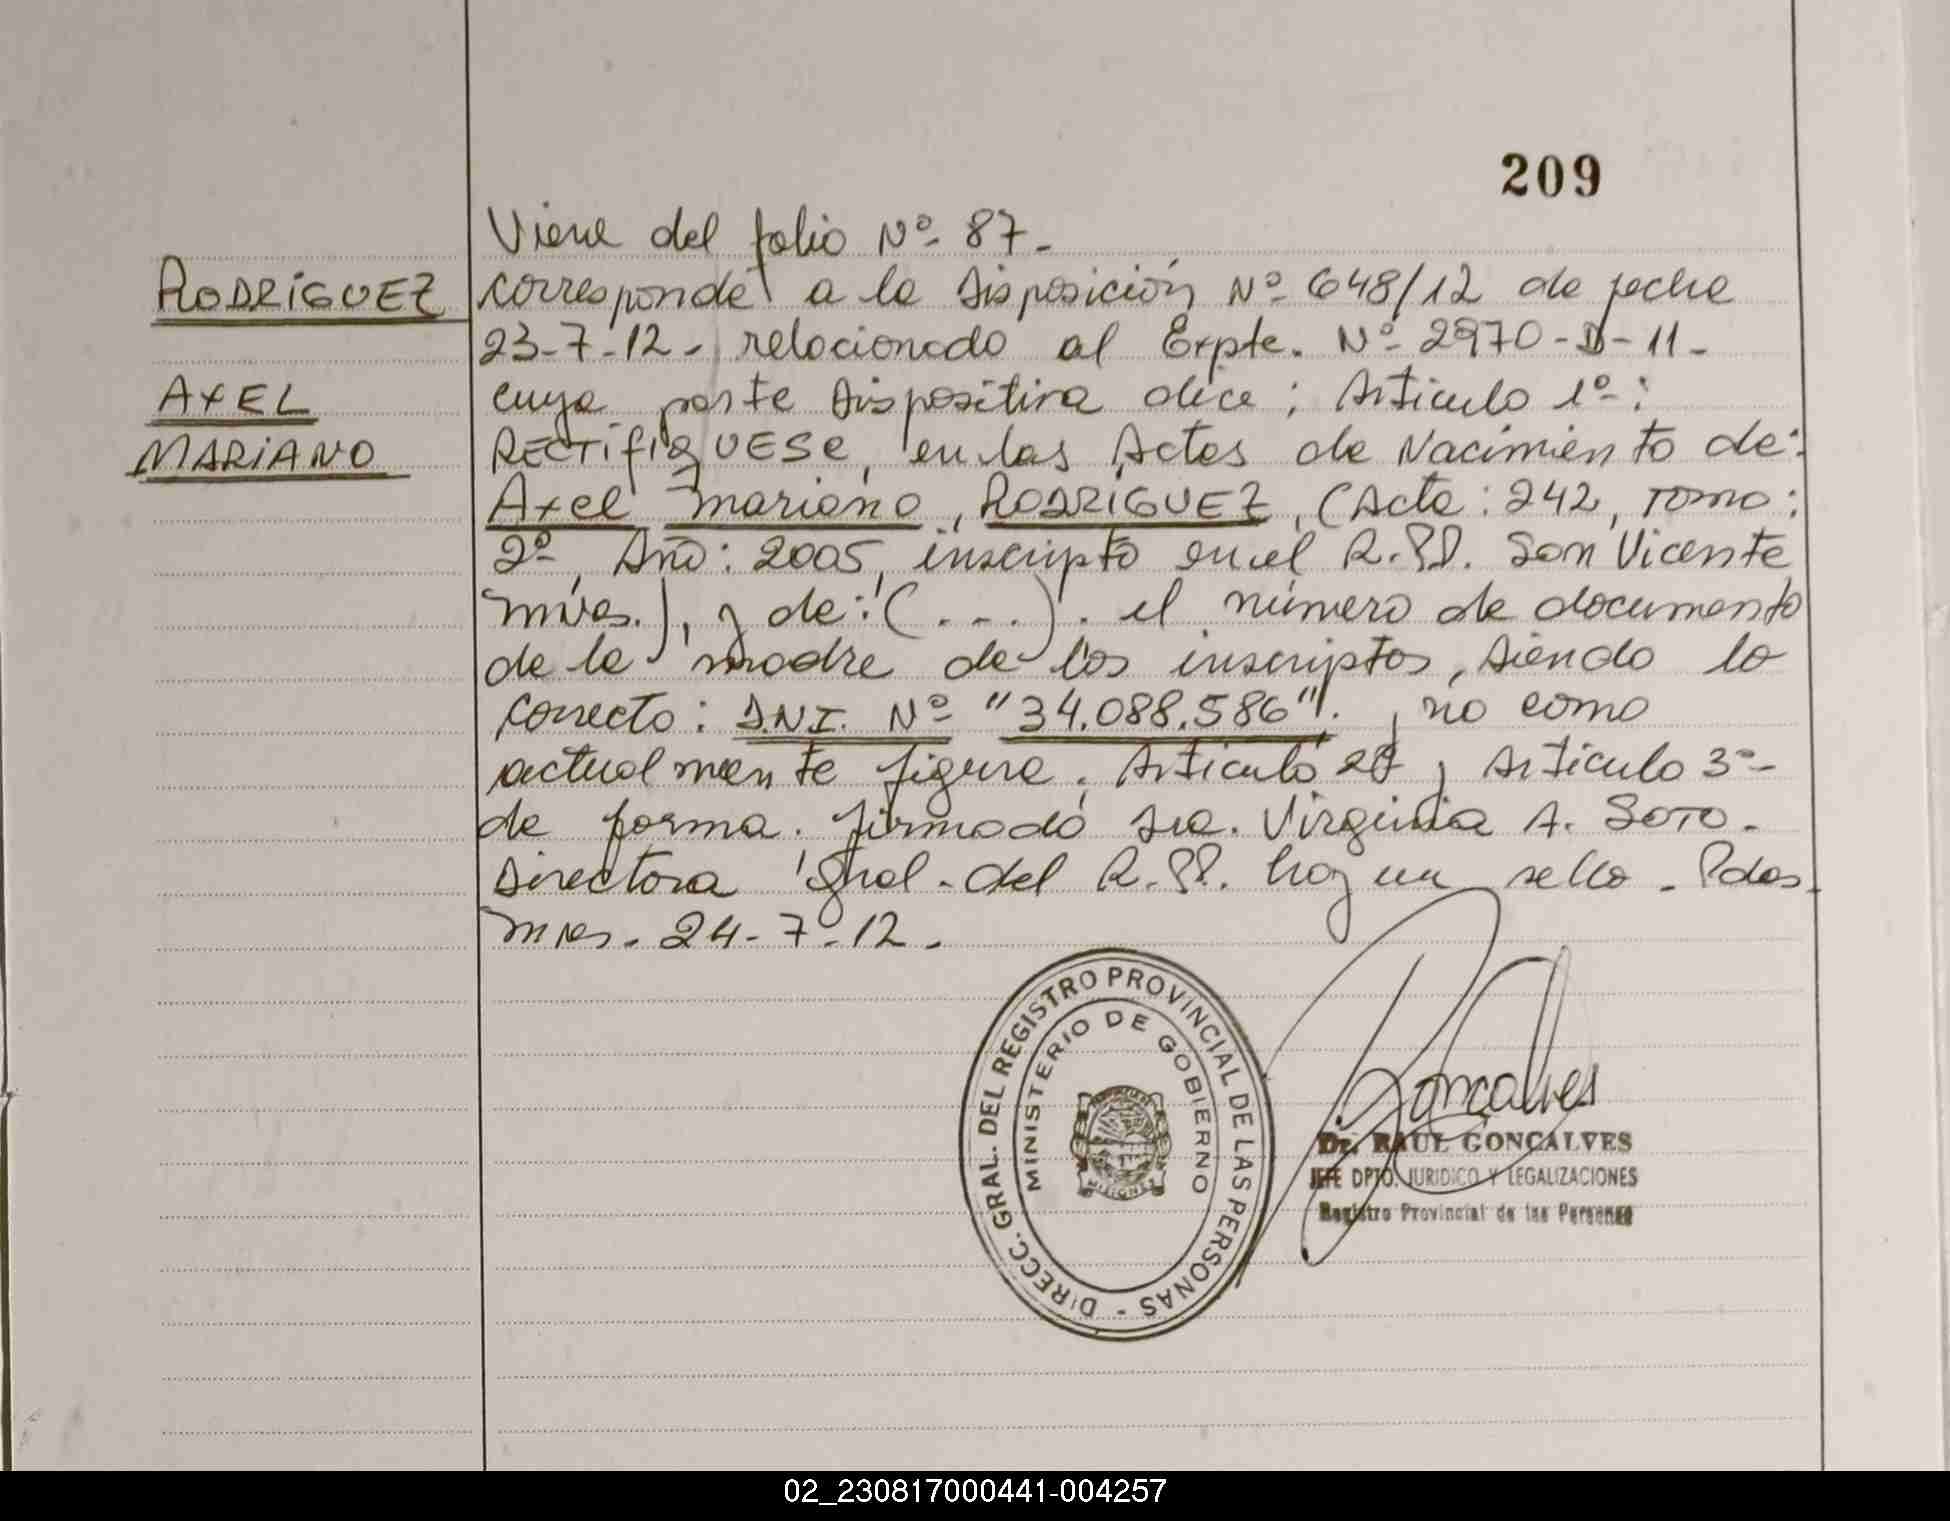 209
Viene del folio Nº 87-
RODRÍGUEZ
corresponde a la Disposición Nº 648/12 de fecha
23-7-12- relacionado al Expte. Nº 2970-D-11-
AXEL
cuya parte Dispositiva dice; Artículo 1º:
MARIANO
RECTIFIQUESE, en las Actas de Nacimiento de:
Axel Mariano, RODRÍGUEZ, (Acta: 242, Tomo:
2º, Año: 2005, inscripto en el R.PP. San Vicente
Mnes.), y de: (...). el número de documento
de la madre de los inscriptos, siendo lo
correcto: D.N.I. Nº "34.088.586". y no como
actualmente figura. Artículo 2º y Artículo 3º-
de forma. firmado Sra. Virginia A. SOTO-
Directora Gral. del R.PP. hay un sello - Pdas.
Mnes. 24-7-12.
DIRECC. GRAL. DEL REGISTRO PROVINCIAL DE LAS PERSONAS -
MINISTERIO DE GOBIERNO
MISIONES
Goncalves
Dr. RAUL GONCALVES
JEFE DPTO. JURIDICO Y LEGALIZACIONES
Registro Provincial de las Personas
02_230817000441-004257